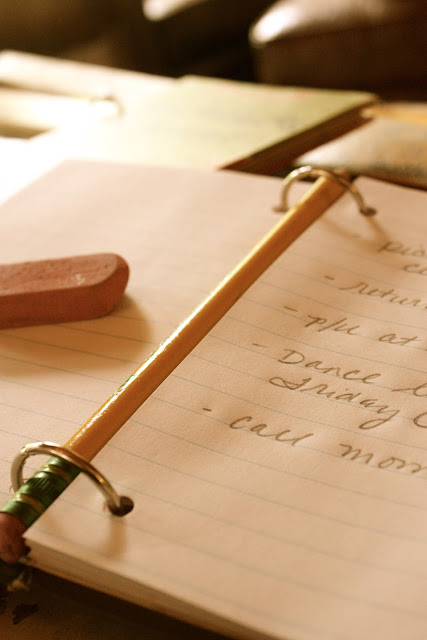 - return
- p/u at
- Dance
Friday
- call mom